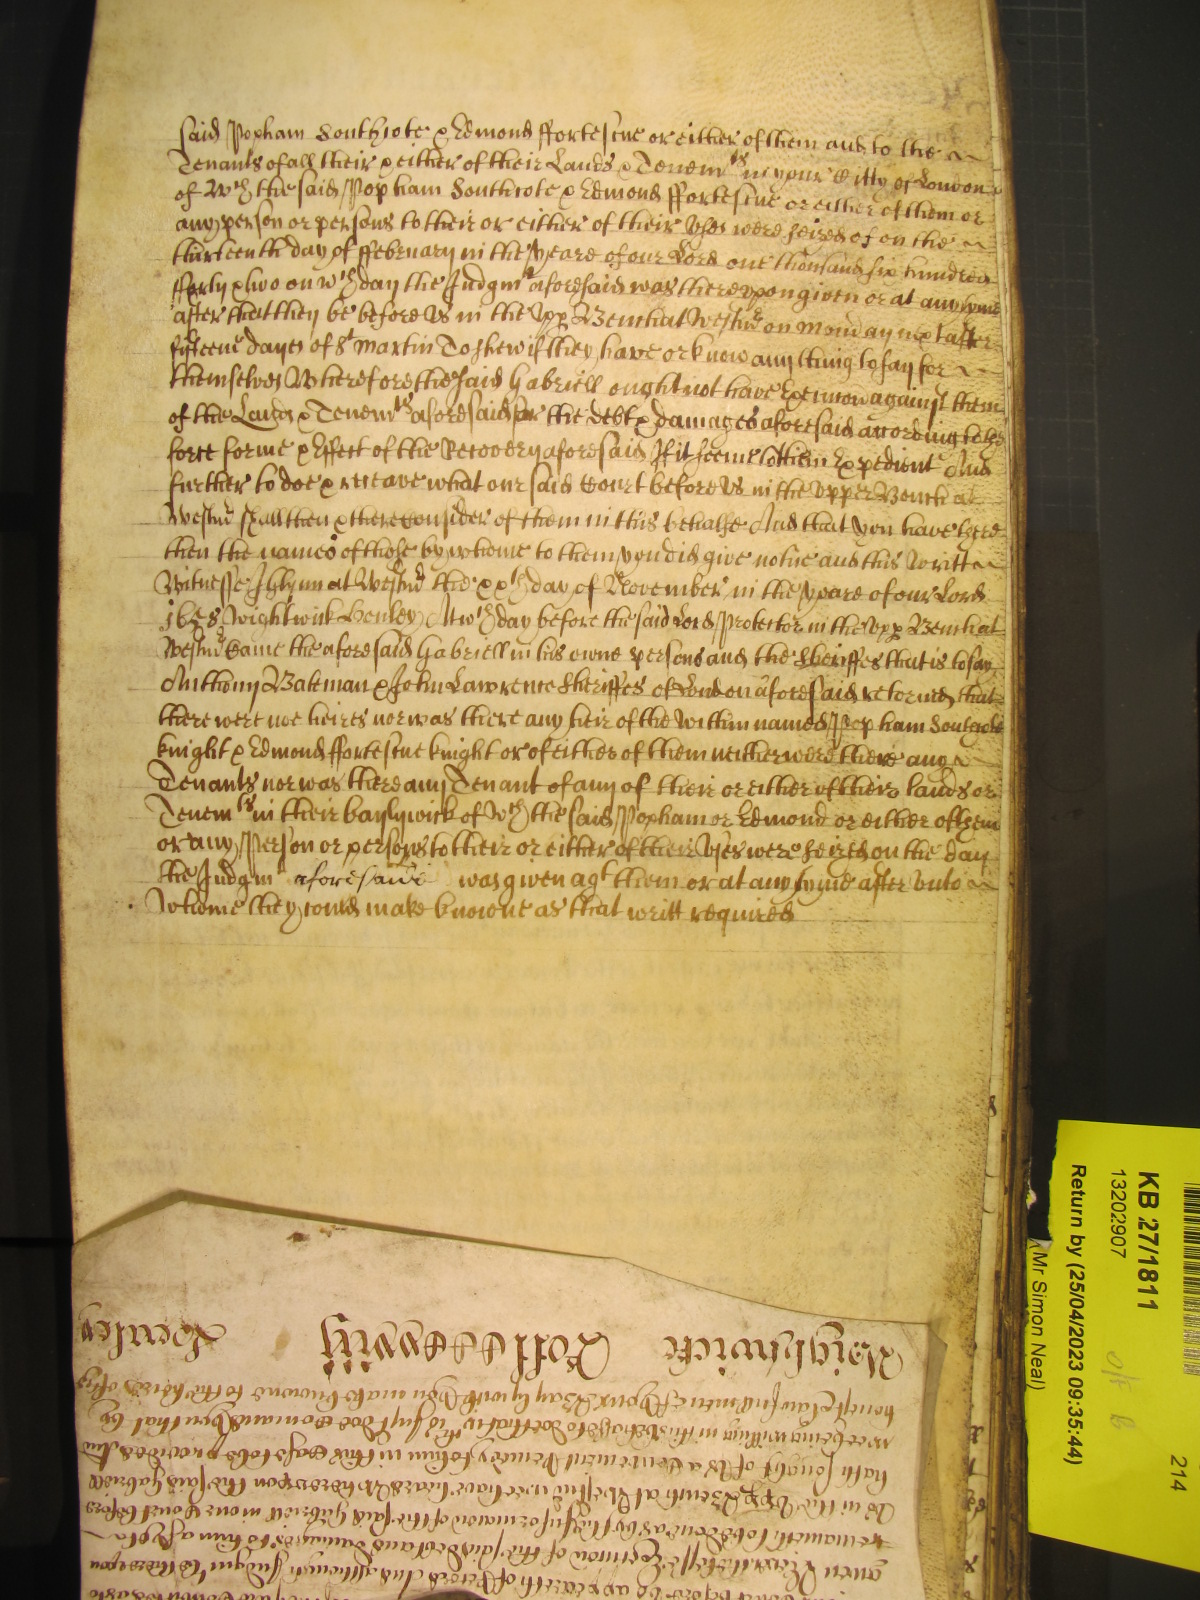 said Popham Southcote & Edmond ffortescue or either of them and to the
Tenants of all their & either of their Lands & Tenemts in your Citty of London
of wch the said Popham Southcote & Edmond ffortescue or either of them or
any person or persons to their or either of their Uses were seized of on the
thirteenth day of ffebruary in the yeare of our Lord one thousand six hundred
fforty & two on wch day the Judgmt aforesaid was thereupon given or at any tyme
after that they be before Us in the Upp Bench at Westmr on Monday next after
fifteene dayes of St Martin To shew if they have or know any thing to say for
themselves Wherefore the said Gabriell ought not have Execution against them
of the Lands & Tenemts aforesaid for the debt & damages aforesaid according to the
force forme & Effect of the Recovery aforesaid If it seeme to them Expedient And
further to doe & receave what our said Court before Us in the Upper Bench at
Westmr shall then & there consider of them in this behalfe And that you have there
then the names of those by whome to them you did give notice and this Writt
Witnesse J Glynn at Westmr the xxth day of November in the yeare of our Lord
1658 Wightwick Henley At wch day before the said Lord Protector in the Upp Bench at
Westmr Came the aforesaid Gabriell in his owne person and the Sheriffes that is to say
Anthony Bateman & John Lawrence Sheriffes of London aforesaid retorned that
there were noe heires nor was there any heir of the within named Popham Southcote
knight & Edmond ffortescue knight or of either of them neither were there any
Tenants nor was there any Tenant of any of their or either of their lands or
Tenemts in their baylywick of wch the said Popham or Edmond or either of them
or any Person or persons to their or either of their Uses were seized on the day
the Judgmt aforesaid was given agt them or at any tyme after unto
whome they could make knowne as that writt requires
KB 27/1811
13202907
Return by (25/04/2023 09:35:44)
Mr Simon Neal)
214
Wightwicke Rott Henley
honest & lawfull men of your Baylywick you make knowne to the heires of
wee being willing in this behalfe to doe that wch is just doe Comand you that by
hath sought of Us a Convenient Remedy to him in this Case to be provided And
Us in the Upp Bench at Westmr wee have heard Whereupon the said Gabriell
remaineth to be done as by the Informacon of the said Gabriell in our Court before